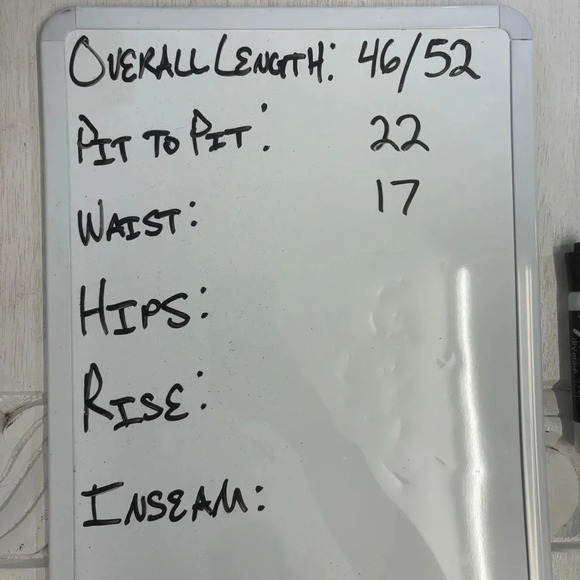 OVERALL LENGTH: 46/52
PIT TO PIT: 22
WAIST: 17
HIPS:
RISE:
INSEAM: